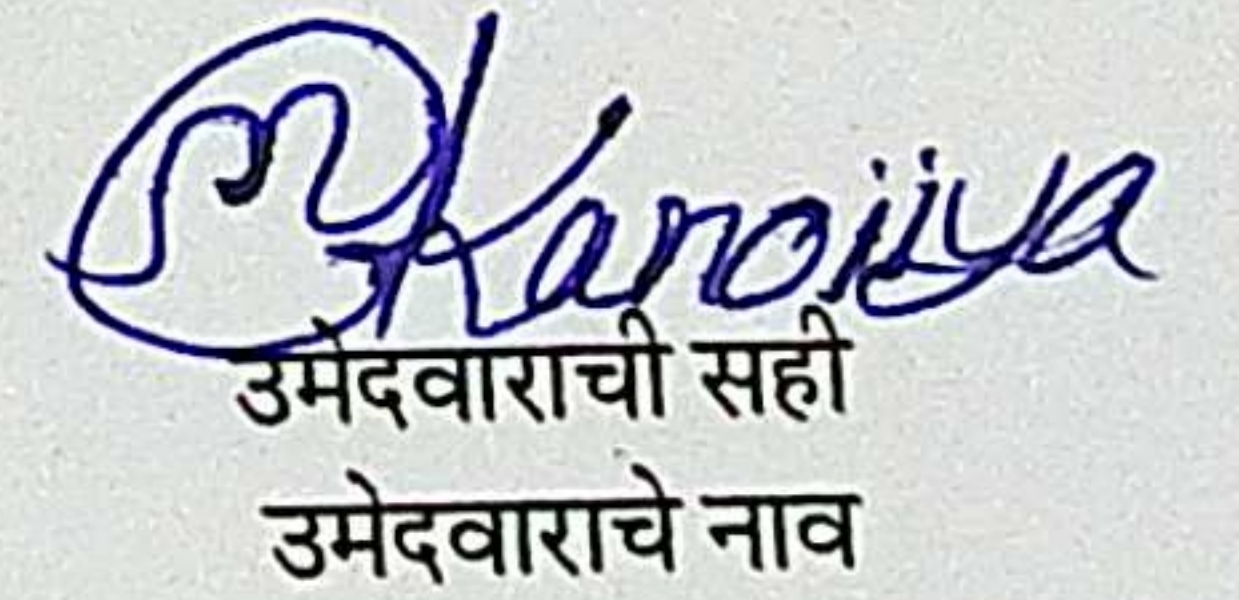 Kanojiya
उमेदवाराची सही
उमेदवाराचे नाव